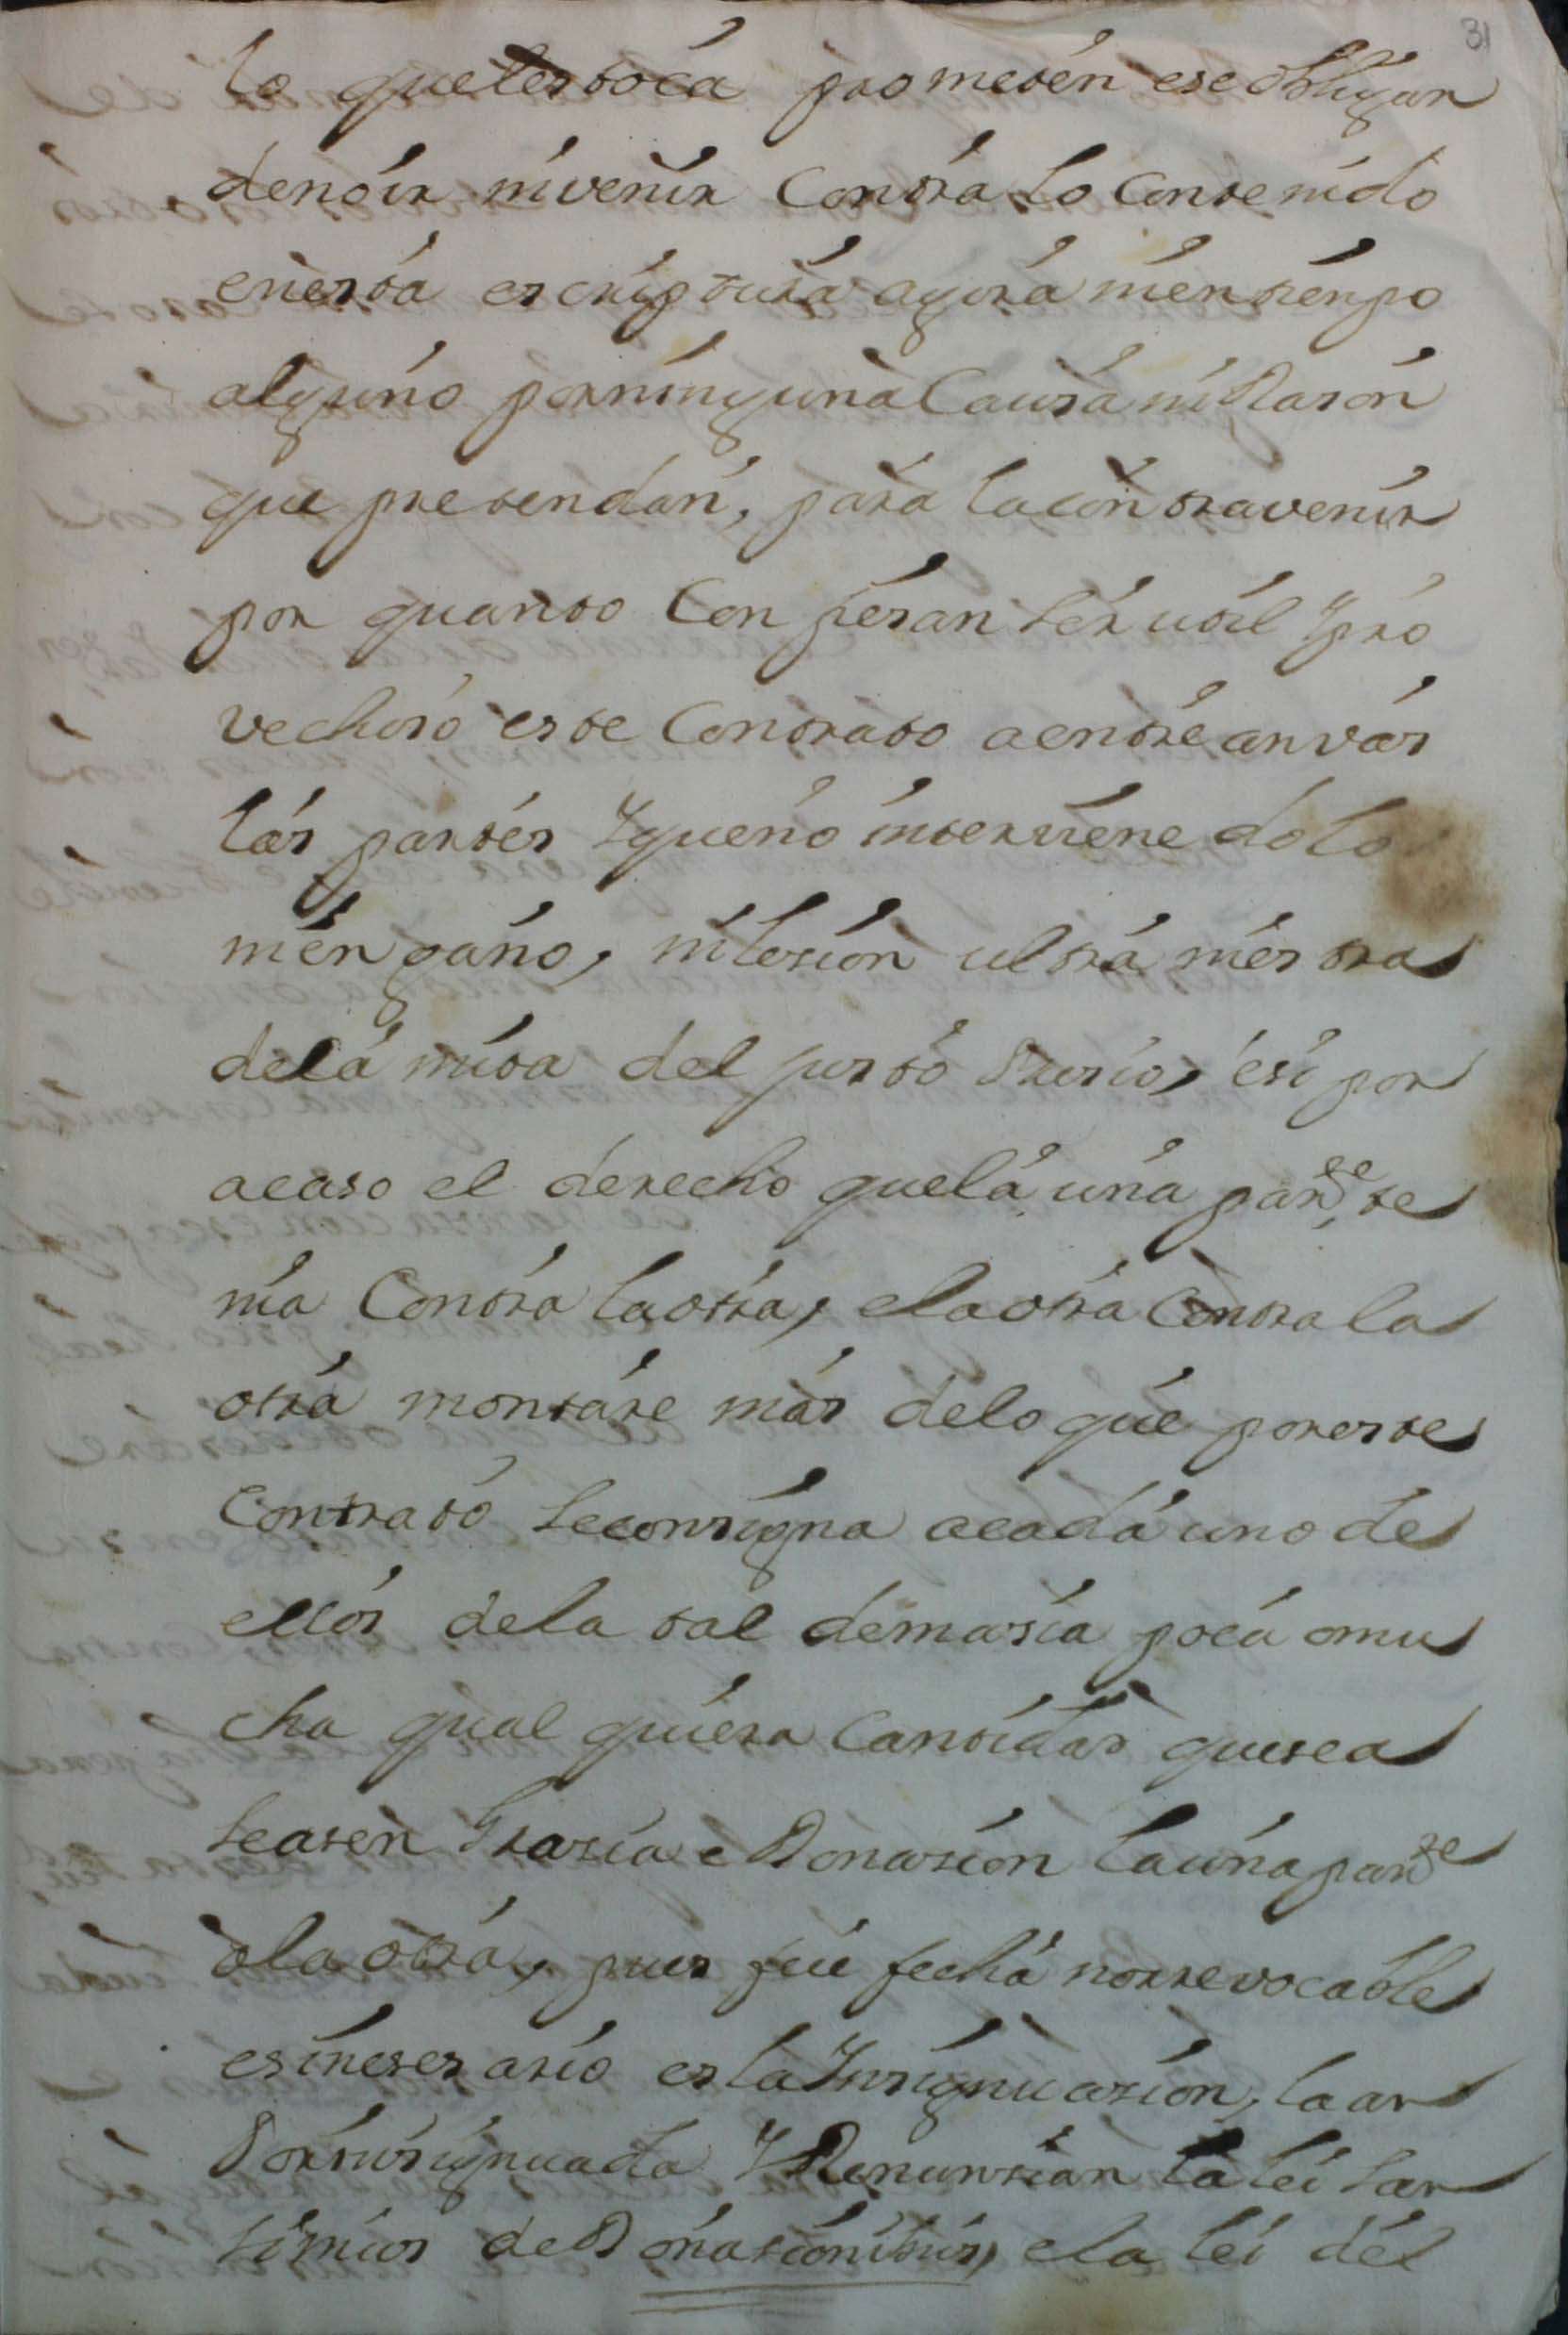 31
lo quelestoca prometen ese obligan
denoir nivenir Contra lo Contenido
enesta escriptura agora nientienpo
alguno porninguna Causa ni Rason
que pretendan, para lacontravenir
por quanto Confiesan ser util Ypro
vechoso este Contrato aentreanvas
las partes Yqueno interviene dolo
niengaño, nilesion ultra niestra
dela mita del justo Presio, esi por
acaso el derecho quela una parte te
nia Contra laotra, elaotra Contra la
otra montare mas delo que poreste
Contrato seconsigna acada uno de
ellos dela tal demasia poca omu
cha qual quiera Cantidad quesea
seasen Grasia e Donasion launaparte
ala otra, pues fue fecha norrevocable
esinesesario esla Ynsignuasion, laan
Porinsignuada Y Renunsian la lei san
simus de Donationibus, ela lei del